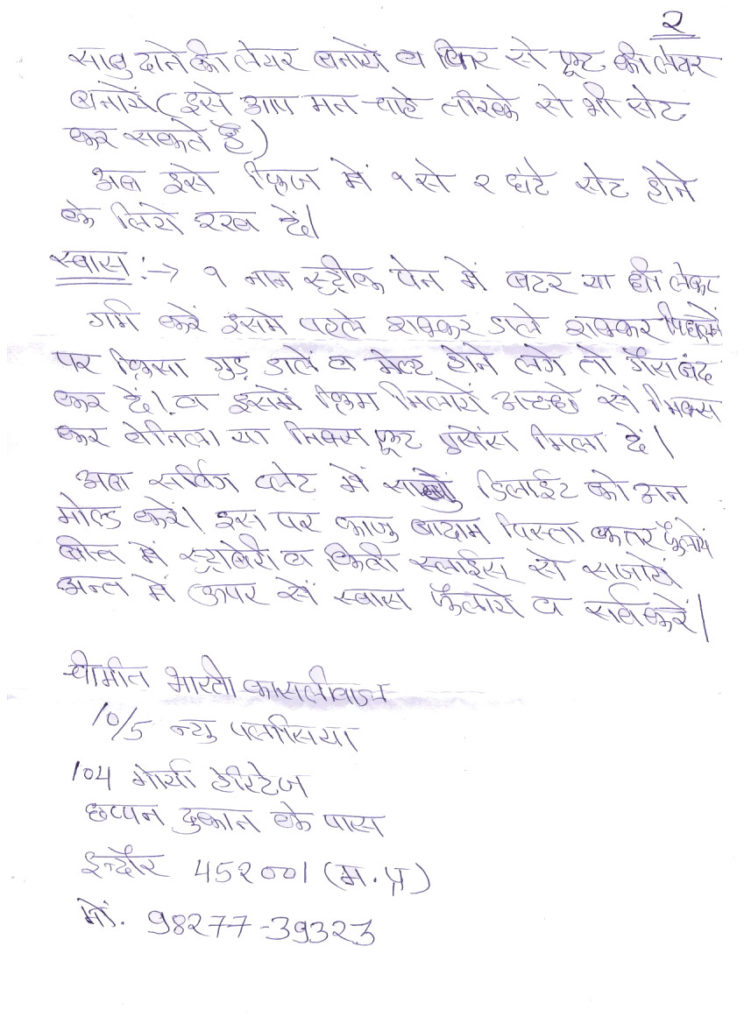 २
साबुदाने की लेयर बनायें व फिर से फ्रूट की लेयर
बनायें (इसे आप मन चाहे तरिके से भी सेट
कर सकते हैं)
अब इसे फ्रिज में १ से २ घंटे सेट होने
के लिये रख दें।
स्वास :→ १ नान स्ट्रीक पेन में बटर या घी लेकर
गर्म करें इसमें पहले शक्कर डाले शक्कर पिघलने
पर किसा गुड़ डालें व मेल्ट होने लगे तो गैस बंद
कर दें। व इसमें क्रिम मिलायें अच्छे से मिक्स
कर वेनिला या मिक्स फ्रूट एसेंस मिला दें।
अब सर्विंग प्लेट में साबु डिलाईट को अन
मोल्ड करें। इस पर काजु बादाम पिस्ता कतर फैलायें
बीच में स्ट्राबेरी व किवी स्लाईस से सजायें
अन्त में ऊपर से स्वास फैलाये व सर्व करें।
श्रीमति भारती कासलीवाल
10/5 न्यु पलासिया
104 हेरिटेज
छप्पन दुकान के पास
इन्दौर 452001 (म.प्र)
मो. 98277-39323